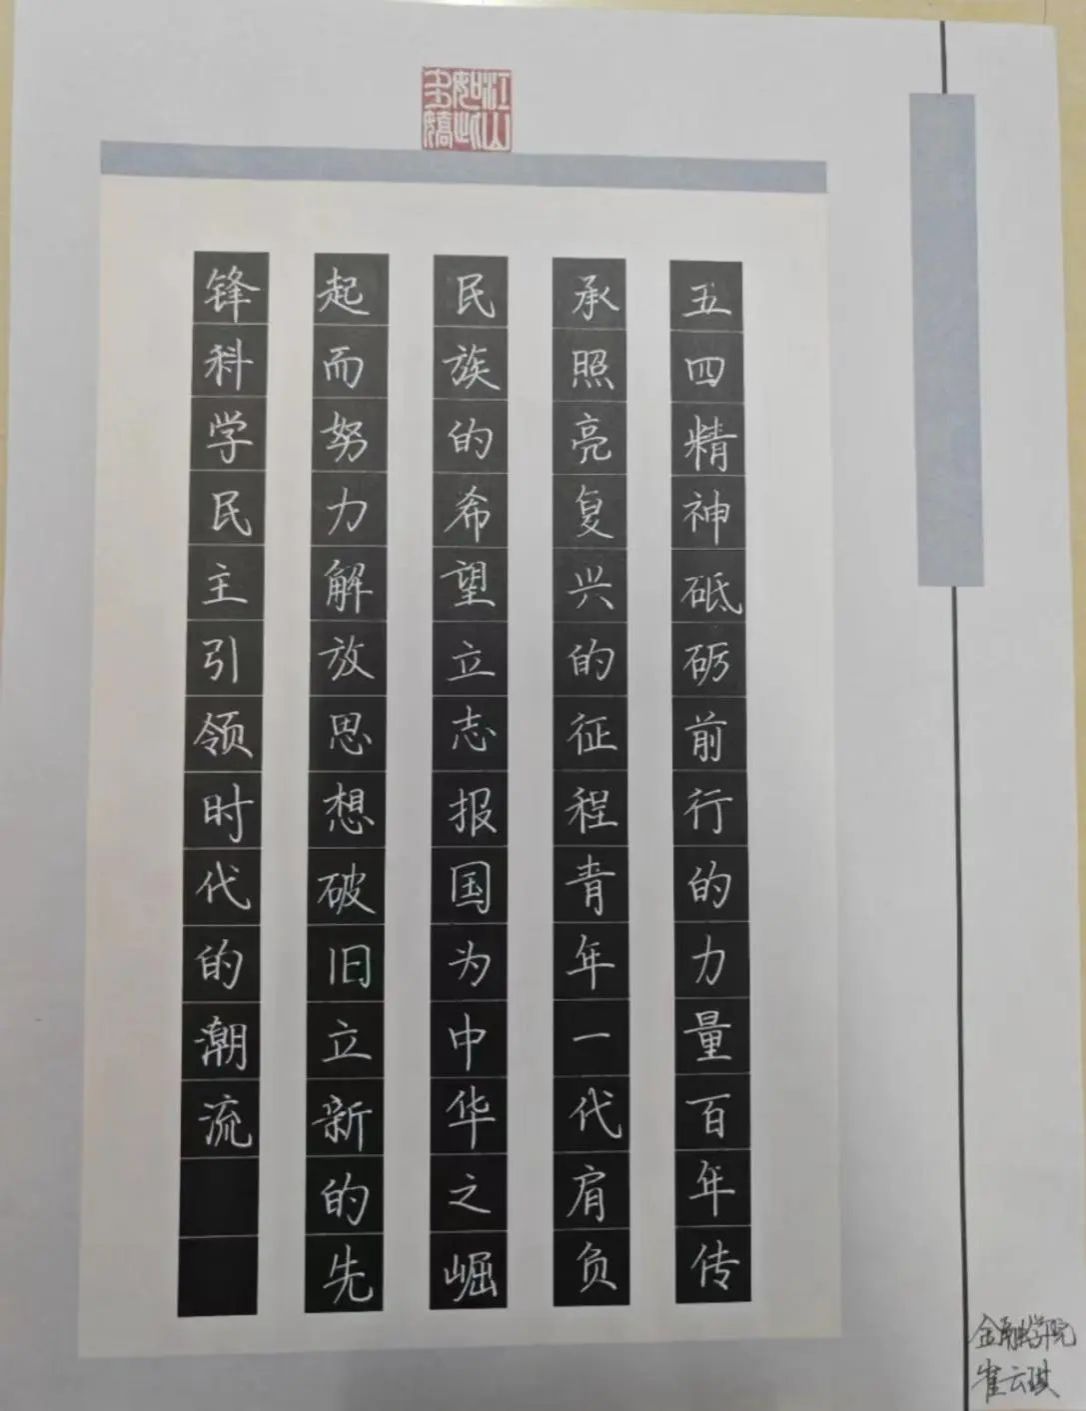 江山如此多娇
五四精神砥砺前行的力量百年传
承照亮复兴的征程青年一代肩负
民族的希望立志报国为中华之崛
起而努力解放思想破旧立新的先
锋科学民主引领时代的潮流
金融学院
崔云琪